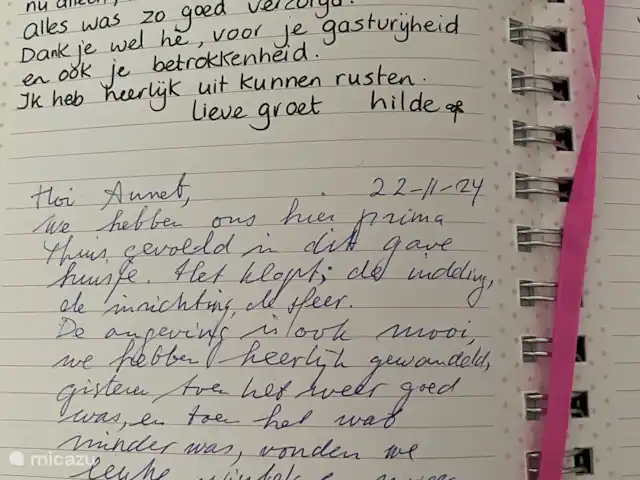 nu alleen,
alles was zo goed verzorgd.
Dank je wel hè, voor je gastvrijheid
en ook je betrokkenheid.
Ik heb heerlijk uit kunnen rusten.
lieve groet hilde
Hoi Annet, 22-11-24
we hebben ons hier prima
thuis gevoeld in dit gave
huisje. Het klopt; de indeling,
de inrichting, de sfeer.
De omgeving is ook mooi,
we hebben heerlijk gewandeld,
gisteren toen het weer goed
was, en toen het wat
minder was, vonden we
leuke
micazu